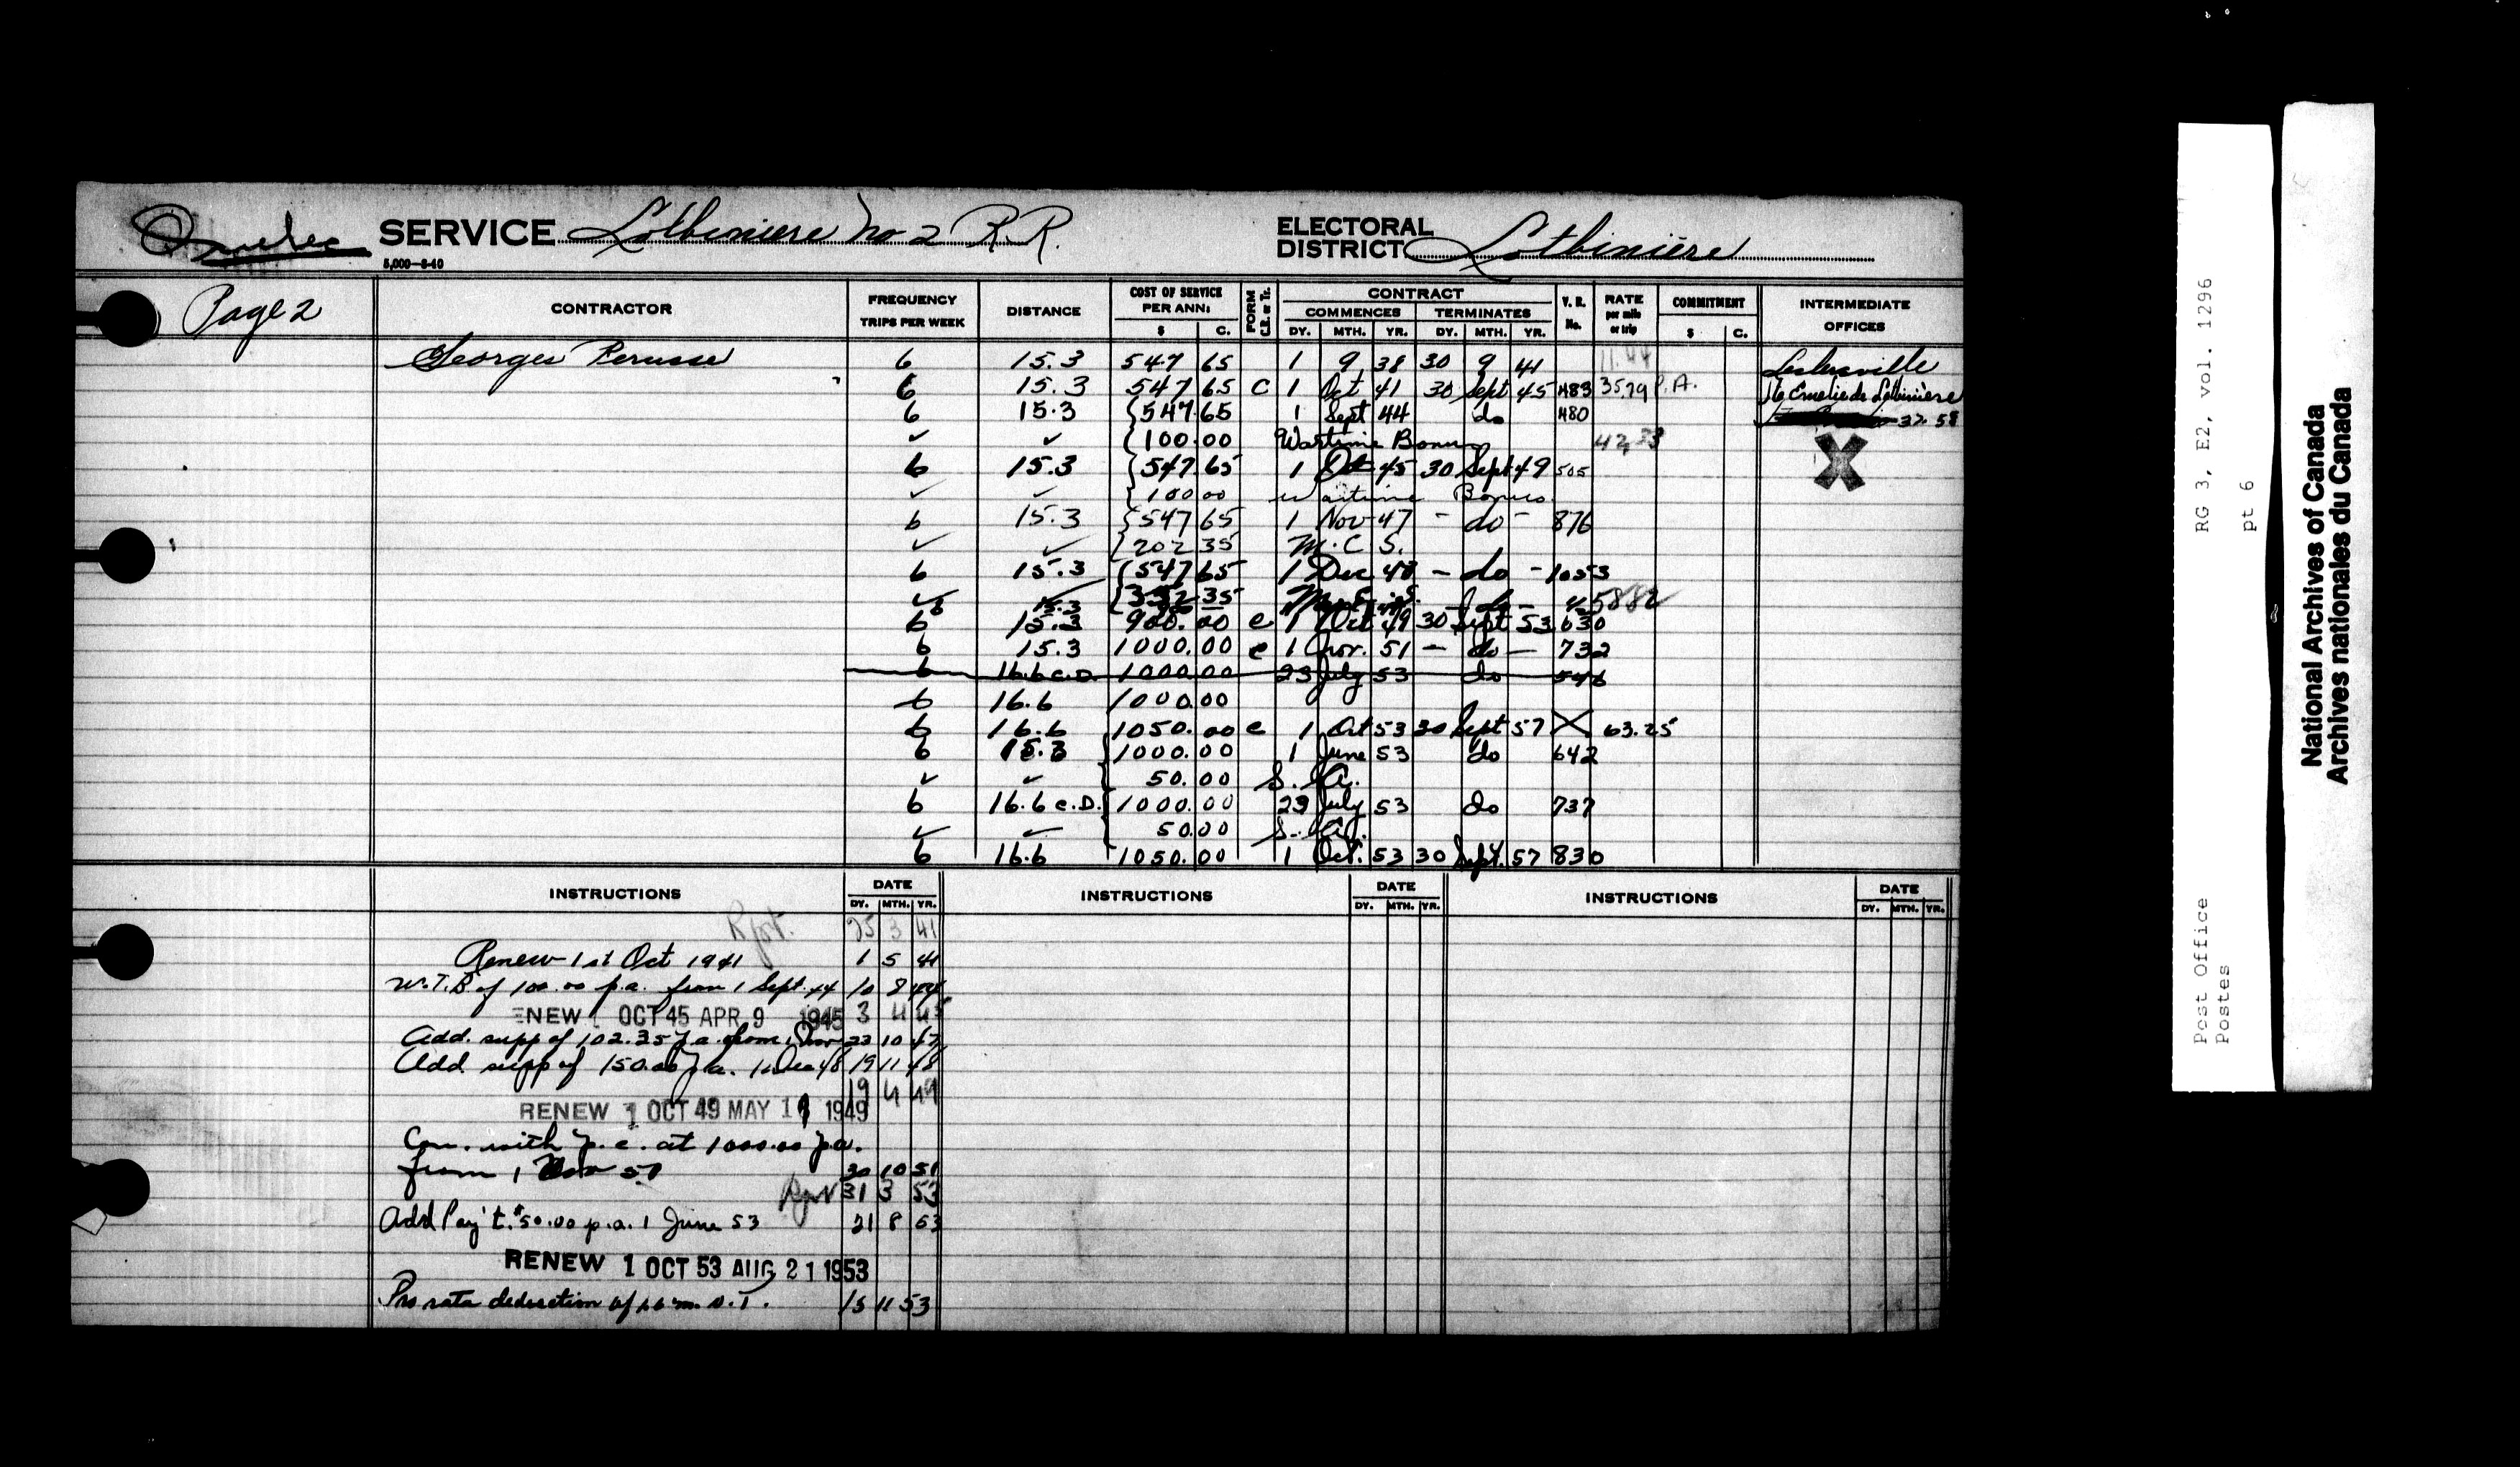 Quebec SERVICE Lotbiniere No 2 R.R. ELECTORAL DISTRICT Lotbinière
5,000—8-40
Page 2 CONTRACTOR FREQUENCY TRIPS PER WEEK DISTANCE COST OF SERVICE PER ANN: $ C. FORM C.R. or Tr. CONTRACT COMMENCES DY. MTH. YR. TERMINATES DY. MTH. YR. V. R. No. RATE per mile or trip COMMITMENT $ C. INTERMEDIATE OFFICES
Georges Perusse 6 15.3 547 65 1 9 38 30 9 41 11.44 Leclercville
6 15.3 547 65 C 1 Oct 41 30 Sept 45 483 35.79 P.A. Ste Emelie de Lotbinière
6 15.3 547.65 1 Sept 44 do 480 37.58
✓ ✓ 100.00 Wartime Bonus
6 15.3 547 65 1 Oct 45 30 Sept 49 505 X
✓ ✓ 100 00 Wartime Bonus
6 15.3 547 65 1 Nov 47 - do - 876
✓ ✓ 202 35 M.C.S.
6 15.3 547 65 1 Dec 48 - do - 1053
✓ 352 35 58.82
6 15.3 900.00 c 1 Oct 49 30 Sept 53 630
6 15.3 1000.00 c 1 Nov. 51 - do - 732
6 16.6 C.D. 1000.00 23 July 53 do 546
6 16.6 1000.00
6 16.6 1050.00 c 1 Oct 53 30 Sept 57 X 63.25
6 15.3 1000.00 1 June 53 do 642
✓ ✓ 50.00 S. A.
6 16.6 C.D. 1000.00 23 July 53 do 737
✓ ✓ 50.00 S. A.
6 16.6 1050.00 1 Oct. 53 30 Sept. 57 830
INSTRUCTIONS DATE DY. MTH. YR. INSTRUCTIONS DATE DY. MTH. YR. INSTRUCTIONS DATE DY. MTH. YR.
Rpt. 25 3 41
Renew 1st Oct 1941 1 5 41
W.T.B of 100.00 p.a. from 1 Sept. 44 10 8 44
ENEW 1 OCT 45 APR 9 1945 3 4 45
Add. supp of 102.35 p.a. from 1 Nov 23 10 47
Add supp of 150.00 p.a. 1 Dec 48 19 11 48
19 4 49
RENEW 1 OCT 49 MAY 11 1949
Con. with p.c. at 1000.00 p.a.
from 1 Nov 51 30 10 51
Rpt 31 3 53
Add Pay't. $50.00 p.a. 1 June 53 21 8 53
RENEW 1 OCT 53 AUG 21 1953
Pro rata deduction of 15 11 53
RG 3, E2, vol. 1296
pt 6
Post Office
Postes
National Archives of Canada
Archives nationales du Canada